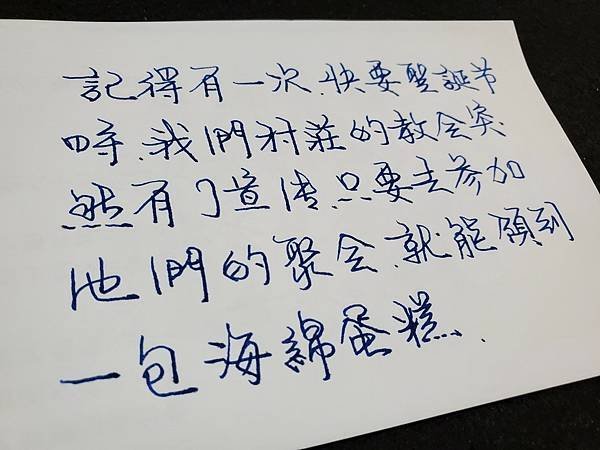 記得有一次、快要聖誕节
時、我們村莊的教会突
然有了宣传、只要去参加
他們的聚会、就能領到
一包海綿蛋糕、